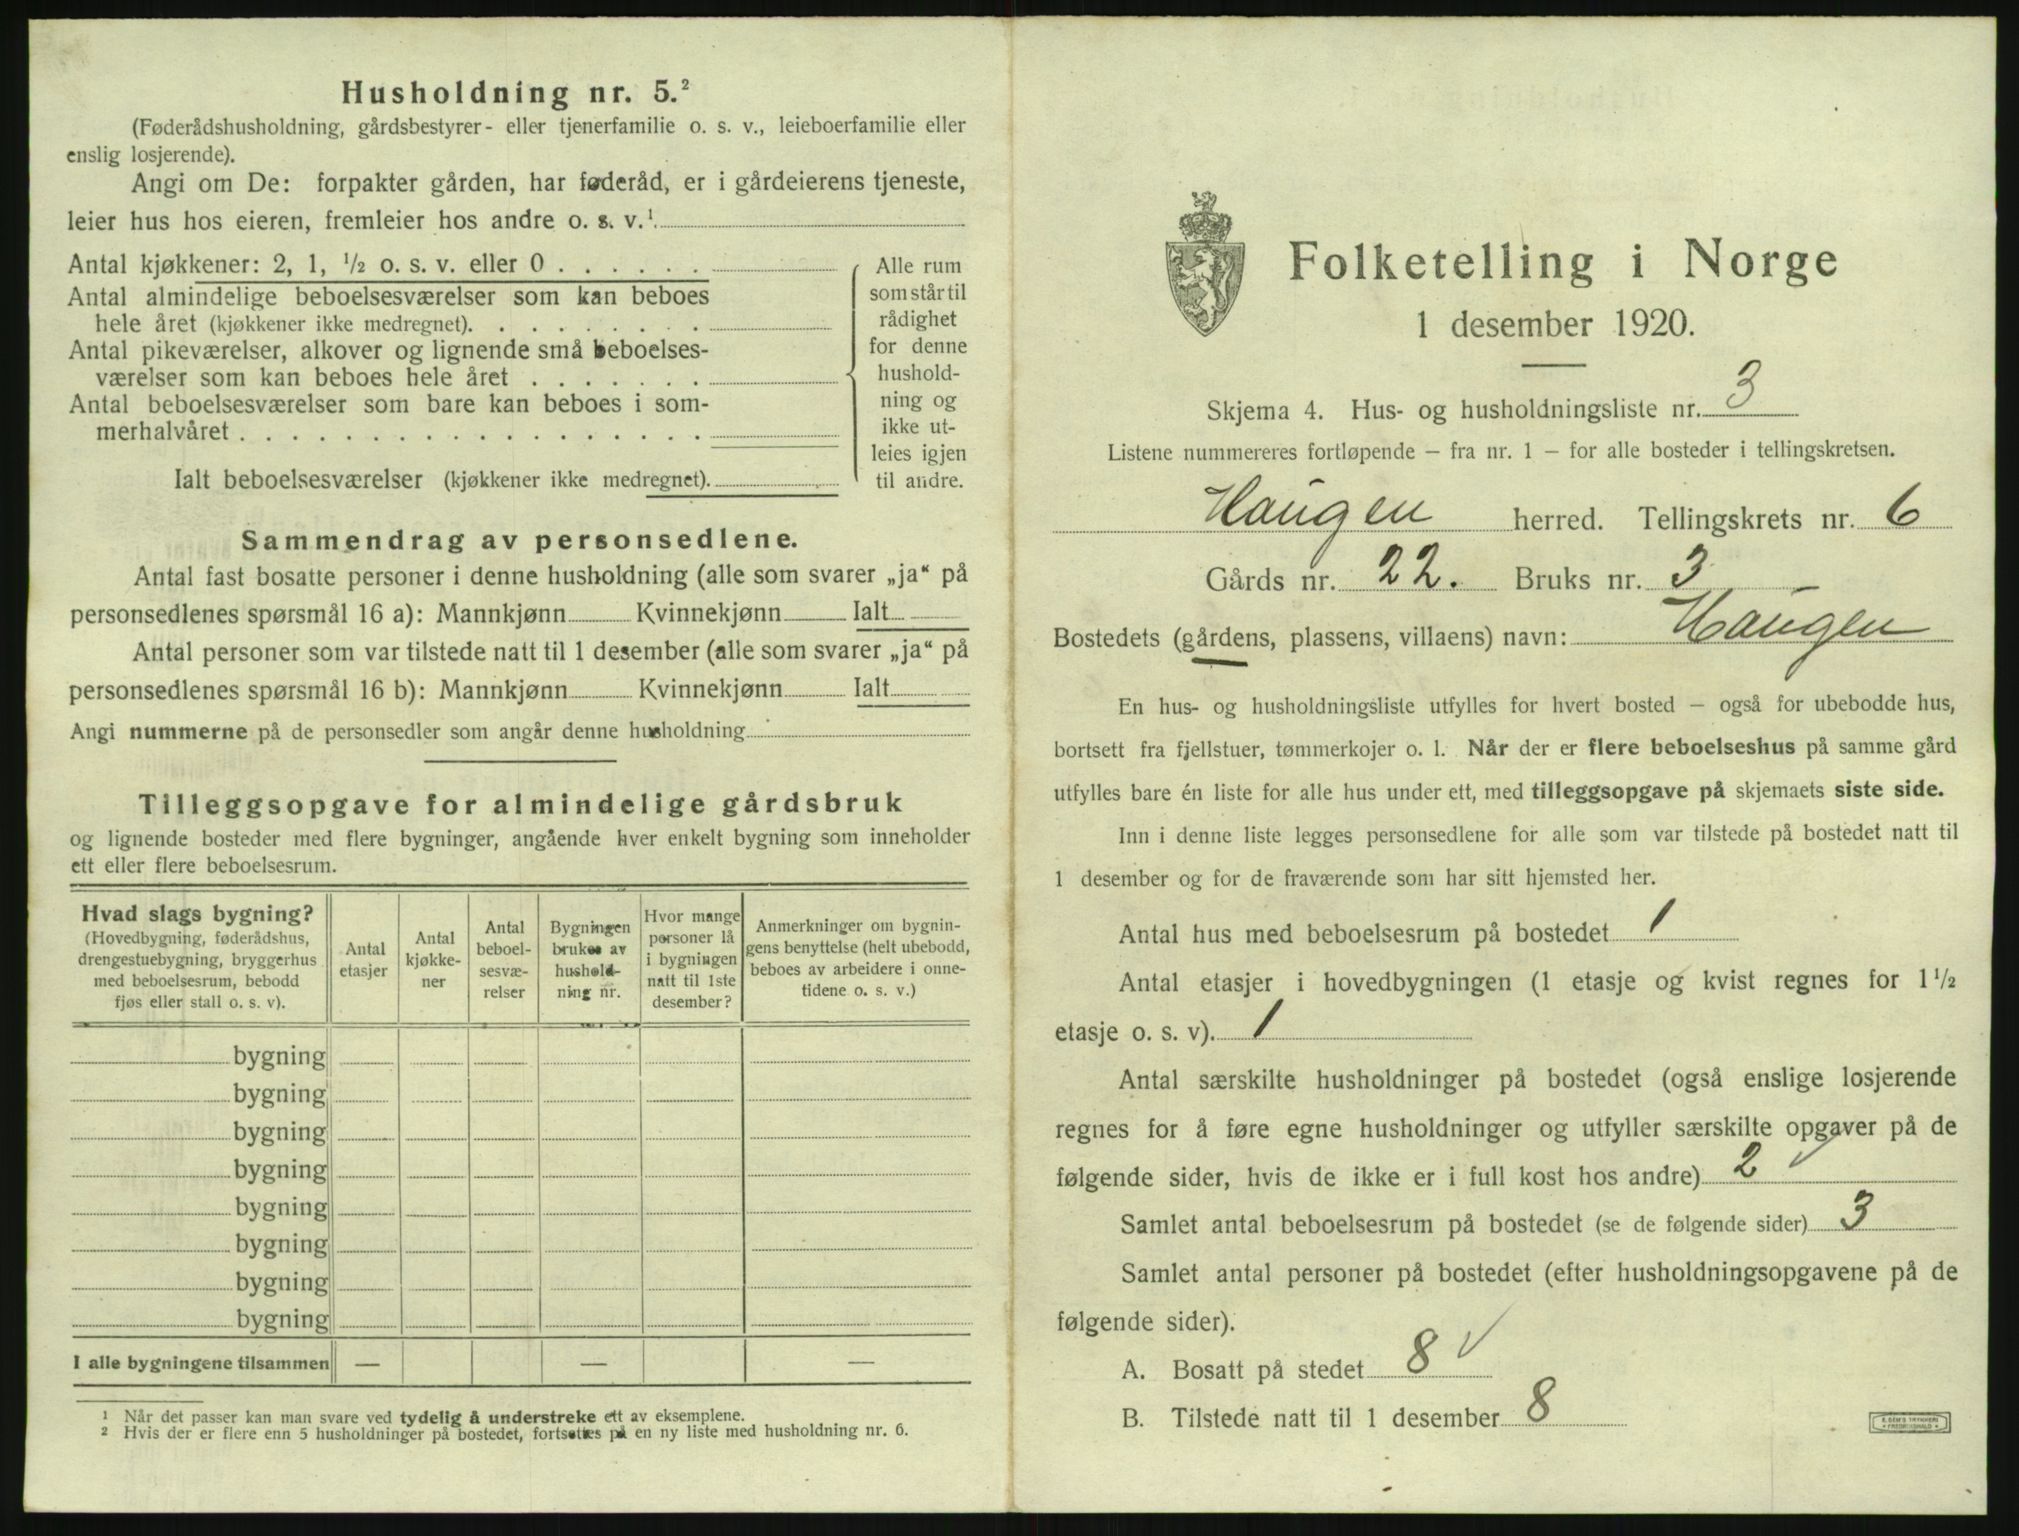 Husholdning nr. 5.²
(Føderådshusholdning, gårdsbestyrer- eller tjenerfamilie o. s. v., leieboerfamilie eller
enslig losjerende).
Angi om De: forpakter gården, har føderåd, er i gårdeierens tjeneste,
leier hus hos eieren, fremleier hos andre o. s. v.¹
Antal kjøkkener: 2, 1, ½ o. s. v. eller 0 . . . . . .
Antal almindelige beboelsesværelser som kan beboes
hele året (kjøkkener ikke medregnet). . . . . . . . .
Antal pikeværelser, alkover og lignende små beboelses-
værelser som kan beboes hele året . . . . . . .
Antal beboelsesværelser som bare kan beboes i som-
merhalvåret . . . . . . . . . . . . . . . . . .
Ialt beboelsesværelser (kjøkkener ikke medregnet).
Alle rum
som står til
rådighet
for denne
hushold-
ning og
ikke ut-
leies igjen
til andre.
Sammendrag av personsedlene.
Antal fast bosatte personer i denne husholdning (alle som svarer „ja“ på
personsedlenes spørsmål 16 a): Mannkjønn Kvinnekjønn Ialt
Antal personer som var tilstede natt til 1 desember (alle som svarer „ja“ på
personsedlenes spørsmål 16 b): Mannkjønn Kvinnekjønn Ialt
Angi nummerne på de personsedler som angår denne husholdning
Tilleggsopgave for almindelige gårdsbruk
og lignende bosteder med flere bygninger, angående hver enkelt bygning som inneholder
ett eller flere beboelsesrum.
Hvad slags bygning?
(Hovedbygning, føderådshus,
drengestuebygning, bryggerhus
med beboelsesrum, bebodd
fjøs eller stall o. s. v).
Antal
etasjer
Antal
kjøkke-
ner
Antal
beboel-
sesvæ-
relser
Bygningen
brukes av
hushold-
ning nr.
Hvor mange
personer lå
i bygningen
natt til 1ste
desember?
Anmerkninger om bygnin-
gens benyttelse (helt ubebodd,
beboes av arbeidere i onne-
tidene o. s. v.)
bygning
bygning
bygning
bygning
bygning
bygning
bygning
bygning
I alle bygningene tilsammen — — —
¹ Når det passer kan man svare ved tydelig å understreke ett av eksemplene.
² Hvis der er flere enn 5 husholdninger på bostedet, fortsettes på en ny liste med husholdning nr. 6.
Folketelling i Norge
1 desember 1920.
Skjema 4. Hus- og husholdningsliste nr. 3
Listene nummereres fortløpende – fra nr. 1 – for alle bosteder i tellingskretsen.
Haugen herred. Tellingskrets nr. 6
Gårds nr. 22. Bruks nr. 3
Bostedets (gårdens, plassens, villaens) navn: Haugen
En hus- og husholdningsliste utfylles for hvert bosted – også for ubebodde hus,
bortsett fra fjellstuer, tømmerkojer o. l. Når der er flere beboelseshus på samme gård
utfylles bare én liste for alle hus under ett, med tilleggsopgave på skjemaets siste side.
Inn i denne liste legges personsedlene for alle som var tilstede på bostedet natt til
1 desember og for de fraværende som har sitt hjemsted her.
Antal hus med beboelsesrum på bostedet 1
Antal etasjer i hovedbygningen (1 etasje og kvist regnes for 1½
etasje o. s. v). 1
Antal særskilte husholdninger på bostedet (også enslige losjerende
regnes for å føre egne husholdninger og utfyller særskilte opgaver på de
følgende sider, hvis de ikke er i full kost hos andre) 2 ✓
Samlet antal beboelsesrum på bostedet (se de følgende sider) 3
Samlet antal personer på bostedet (efter husholdningsopgavene på de
følgende sider).
A. Bosatt på stedet 8 ✓
B. Tilstede natt til 1 desember 8